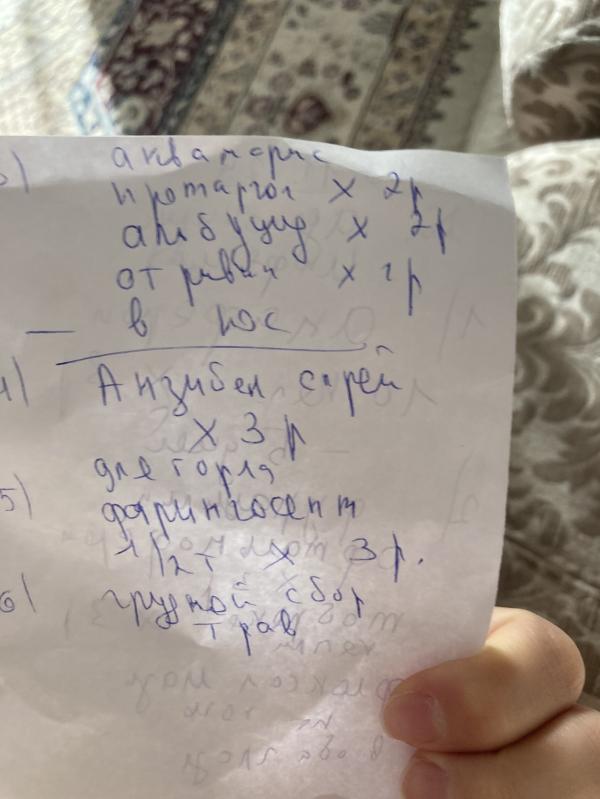 3) аквамарис
протаргол х 2р
альбуцид х 2р
отривин х 2р
— в нос
4) Анзибел спрей
х 3р
для горла
5) фарингосепт
1/2т х 3р.
6) грудной сбор
трав